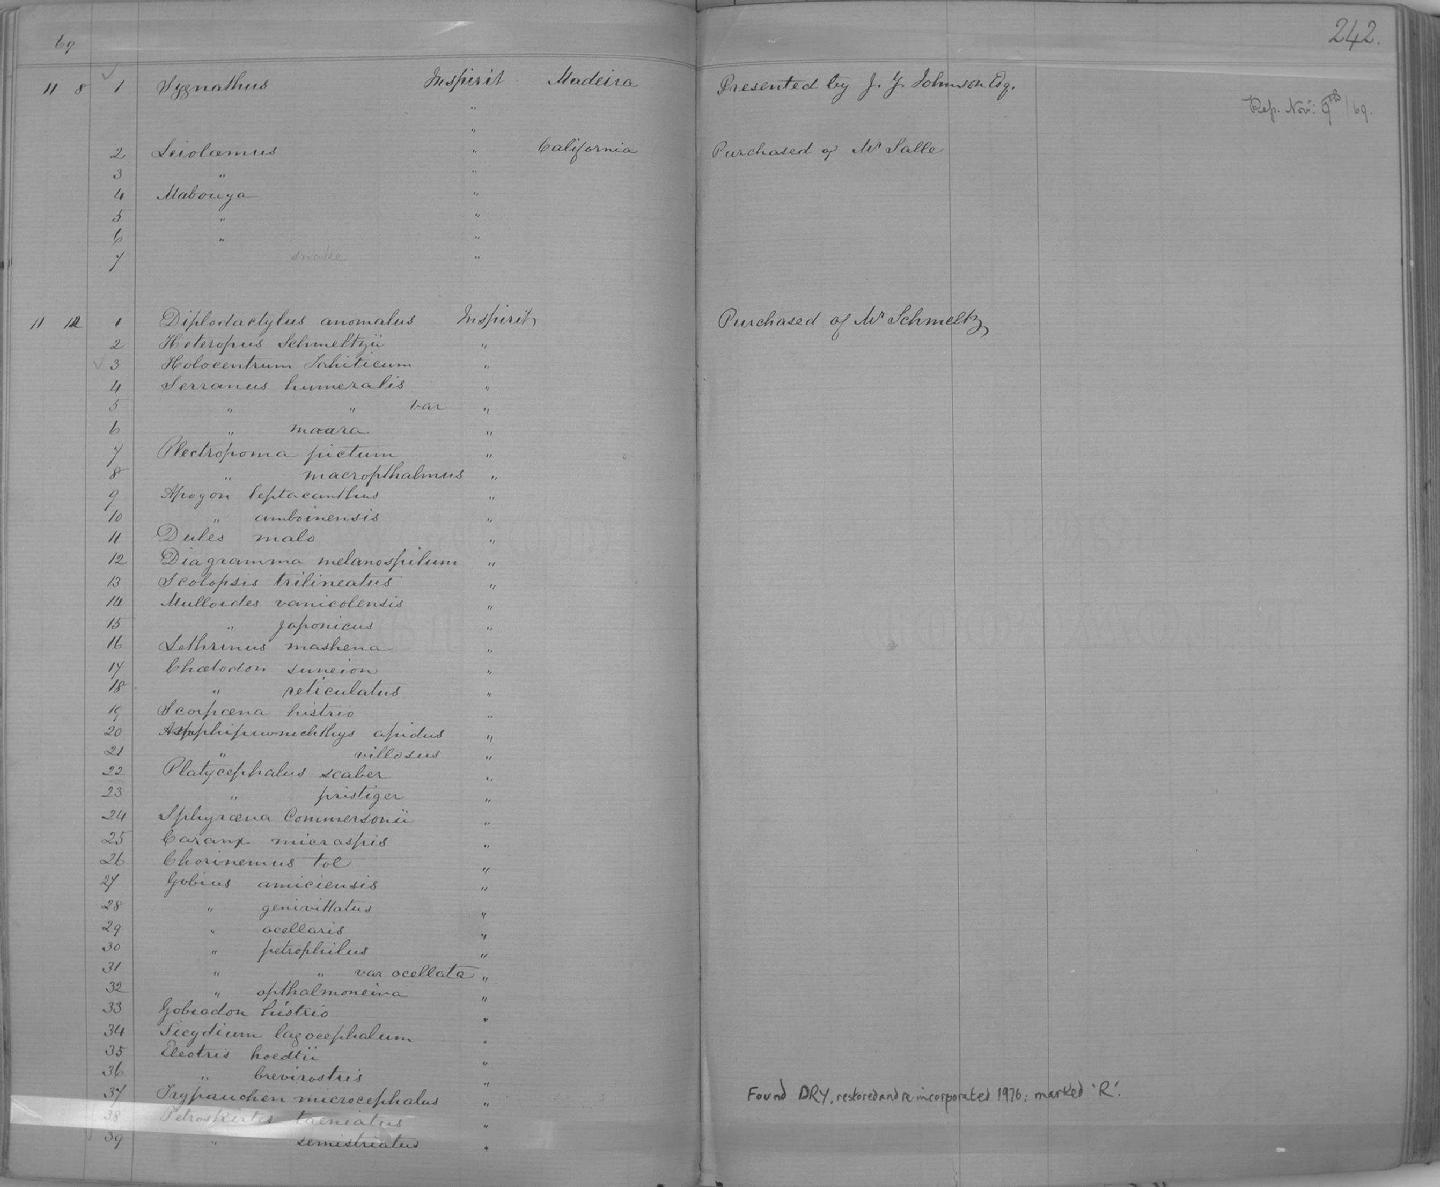 69
242.
11 8 1 Sygnathus Inspirit Madeira Presented by J. Y. Johnson Esq.
" Rep. Nov. 9th/69.
"
2 Leiolæmus " California Purchased of Mr Salle
3 " "
4 Mabouya "
5 " "
6 " "
7 snake "
11 12 1 Diplodactylus anomalus Inspirit Purchased of Mr Schmeltz
2 Heteropus Schmeltzii "
3 Holocentrum Tahiticum "
4 Serranus humeralis "
5 " " var "
6 " maara "
7 Plectropoma pictum "
8 " macropthalmus "
9 Apogon septacanthus "
10 " amboinensis "
11 Dules malo "
12 Diagramma melanospilum "
13 Scolopsis trilineatus "
14 Mulloides vanicolensis "
15 " japonicus "
16 Lethrinus mashena "
17 Chætodon
18 " reticulatus "
19 Scorpæna histrio "
20 apidus "
21 " villosus "
22 Platycephalus scaber "
23 " pristiger "
24 Sphyræna Commersonii "
25 Caranx micraspis "
26 Chorinemus tol "
27 Gobius amiciensis "
28 " genivittatus "
29 " ocellaris "
30 " petrophilus "
31 " " var ocellata "
32 " opthalmoneura "
33 Gobiodon histrio "
34 Sicydium lagocephalum "
35 Eleotris hoedtii "
36 " brevirostris "
37 Trypauchen microcephalus " Found DRY, restored and reincorporated 1976; marked 'R'.
38 Petroskirtes taeniatus "
39 " semistriatus "